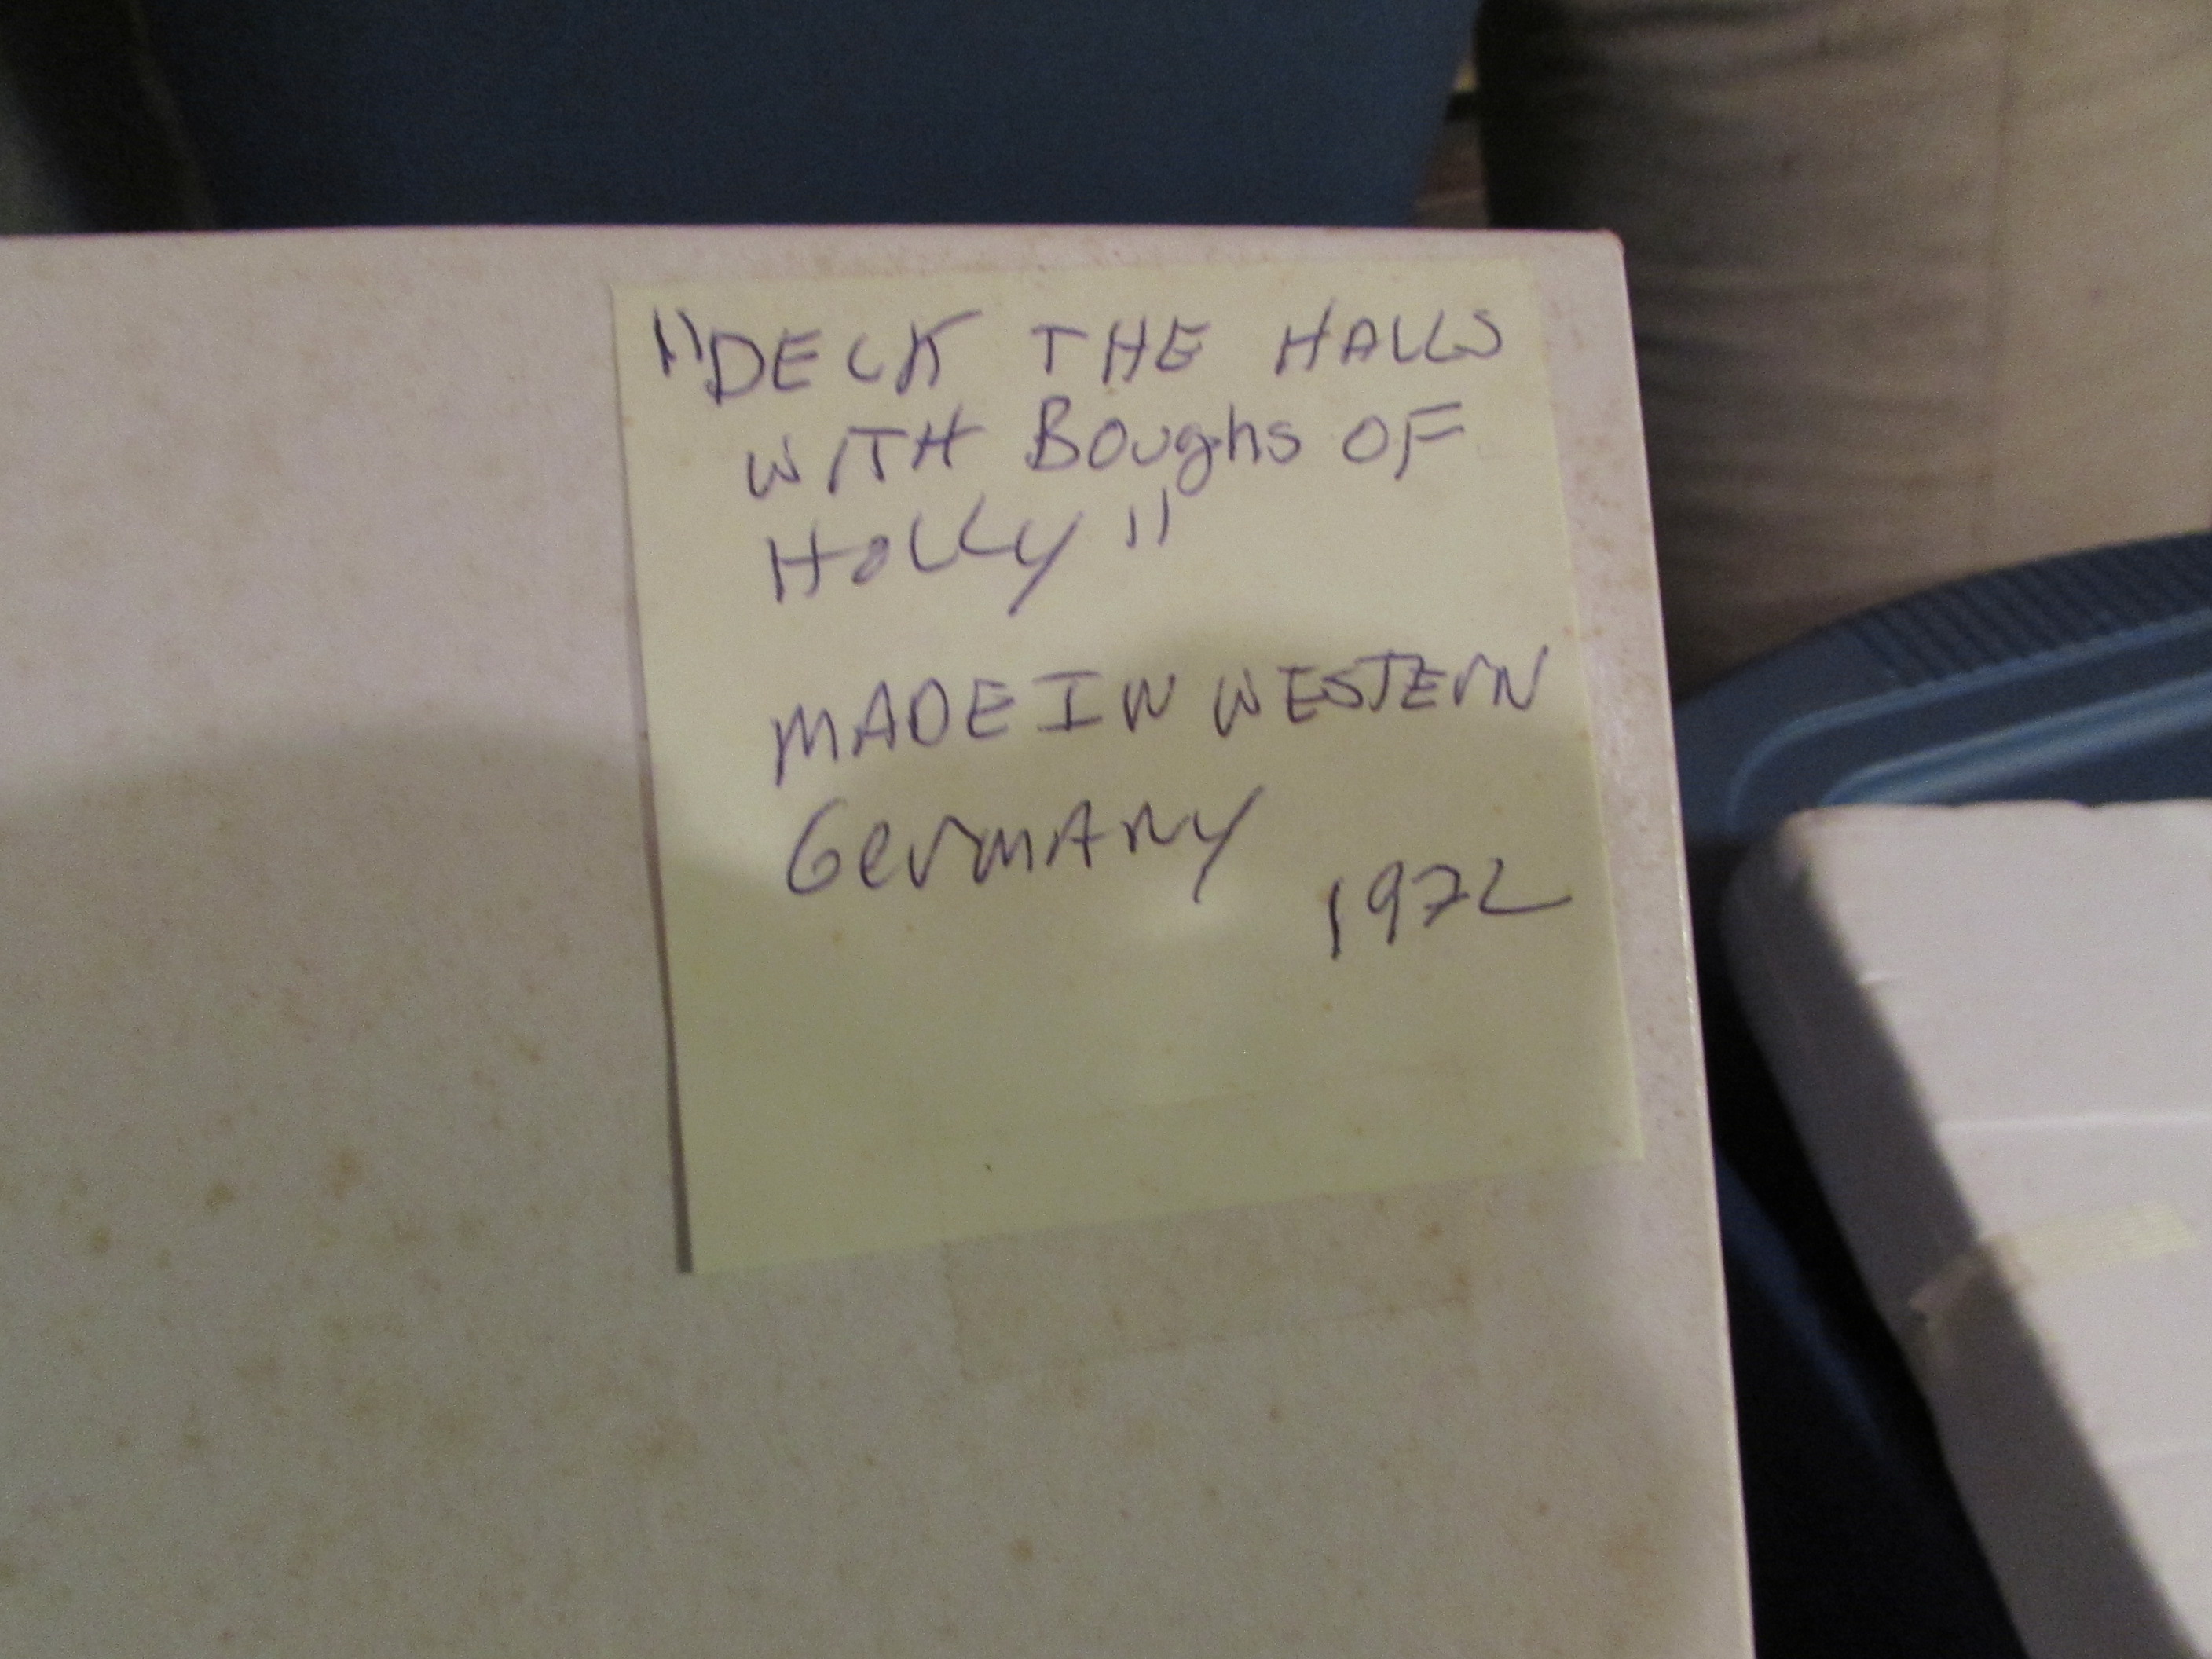 "DECK THE HALLS
WITH Boughs OF
HOLLY"
MADE IN WESTERN
GerMANY
1972